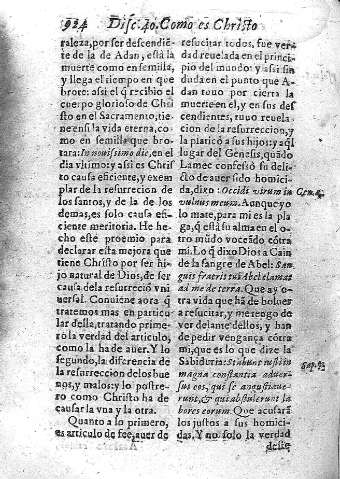 924 Disc. 40. Como es Christo
raleza, por ser descendiē-
te de la de Adan, està la
muerte como en semilla,
y llega el tiempo en que
brote: assi el q̃ recibio el
cuerpo glorioso de Chri
sto en el Sacramento, tie-
ne en si la vida eterna, co-
mo en semilla que bro-
tara: In nouissimo die, en el
dia vltimo; y assi es Chris
to causa eficiente, y exem
plar de la resurrecion de
los santos, y de la de los
demas, es solo causa efi-
ciente meritoria. He he-
cho este proemio para
declarar esta mejora que
tiene Christo por ser hi-
jo natural de Dios, de ser
causa dela resurreciō vni
uersal. Conuiene aora q̃
tratemos mas en particu
lar della, tratando prime-
ro la verdad del articulo,
como la ha de auer. Y lo
segundo, la diferencia de
la resurrecion delos bue
nos, y malos: y lo postre-
ro como Christo ha de
causar la vna y la otra.
Quanto a lo primero,
es articulo de fee, auer de
resucitar todos, fue ver-
dad reuelada en el princi-
pio del mundo: y assi sin
duda en el punto que A-
dan tuuo por cierta la
muerte en el, y en sus des
cendientes, tuuo reuela-
cion de la resurreccion, y
la platicò a sus hijos: y aq̃l
lugar del Genesis, quādo
Lamec confessò su deli-
cto de auer sido homici-
da, dixo: Occidi virum in
vulnus meum. Aunque yo
lo mate, para mi es la pla-
ga, q̃ està su alma en el o-
tro mūdo voceādo cōtra
mi. Lo q̃ dixo Dios a Cain
de la sangre de Abel: San-
guis fratris tui Abel clamat
ad me de terra. Que ay o-
tra vida que hā de boluer
a resucitar, y me tengo de
ver delante dellos, y han
de pedir vengança cōtra
mi, que es lo que dize la
Sabiduria: Stabunt iusti in
magna constantia aduer-
sus eos, qui se angustiaue-
runt, & qui abstulerunt la
bores eorum. Que acusarà
los justos a sus homici-
das. Y no solo la verdad
deste
Gen. 4.